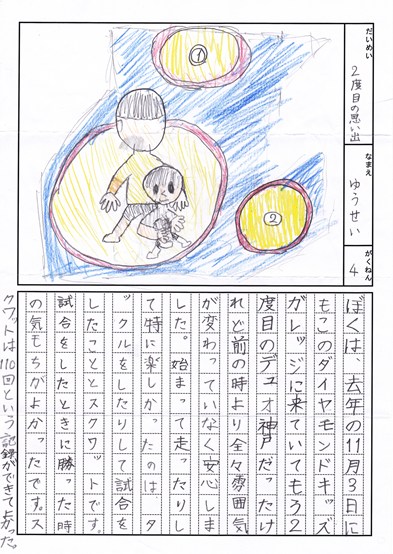 だいめい
2度目の思い出
なまえ
ゆうせい
がくねん
4
①
②
ぼくは、去年の11月3日に
もこのダイヤモンドキッズ
ガレッジに来ていてもう2
度目のデュオ神戸だったけ
れど前の時より全々雰囲気
が変わっていなく安心しま
した。始まって走ったりし
て特に楽しかったのは、タ
ックルをしたりして試合を
したこととスクワットです。
試合をしたときに勝った時
の気もちがよかったです。ス
クワットは110回という記録ができてよかった。